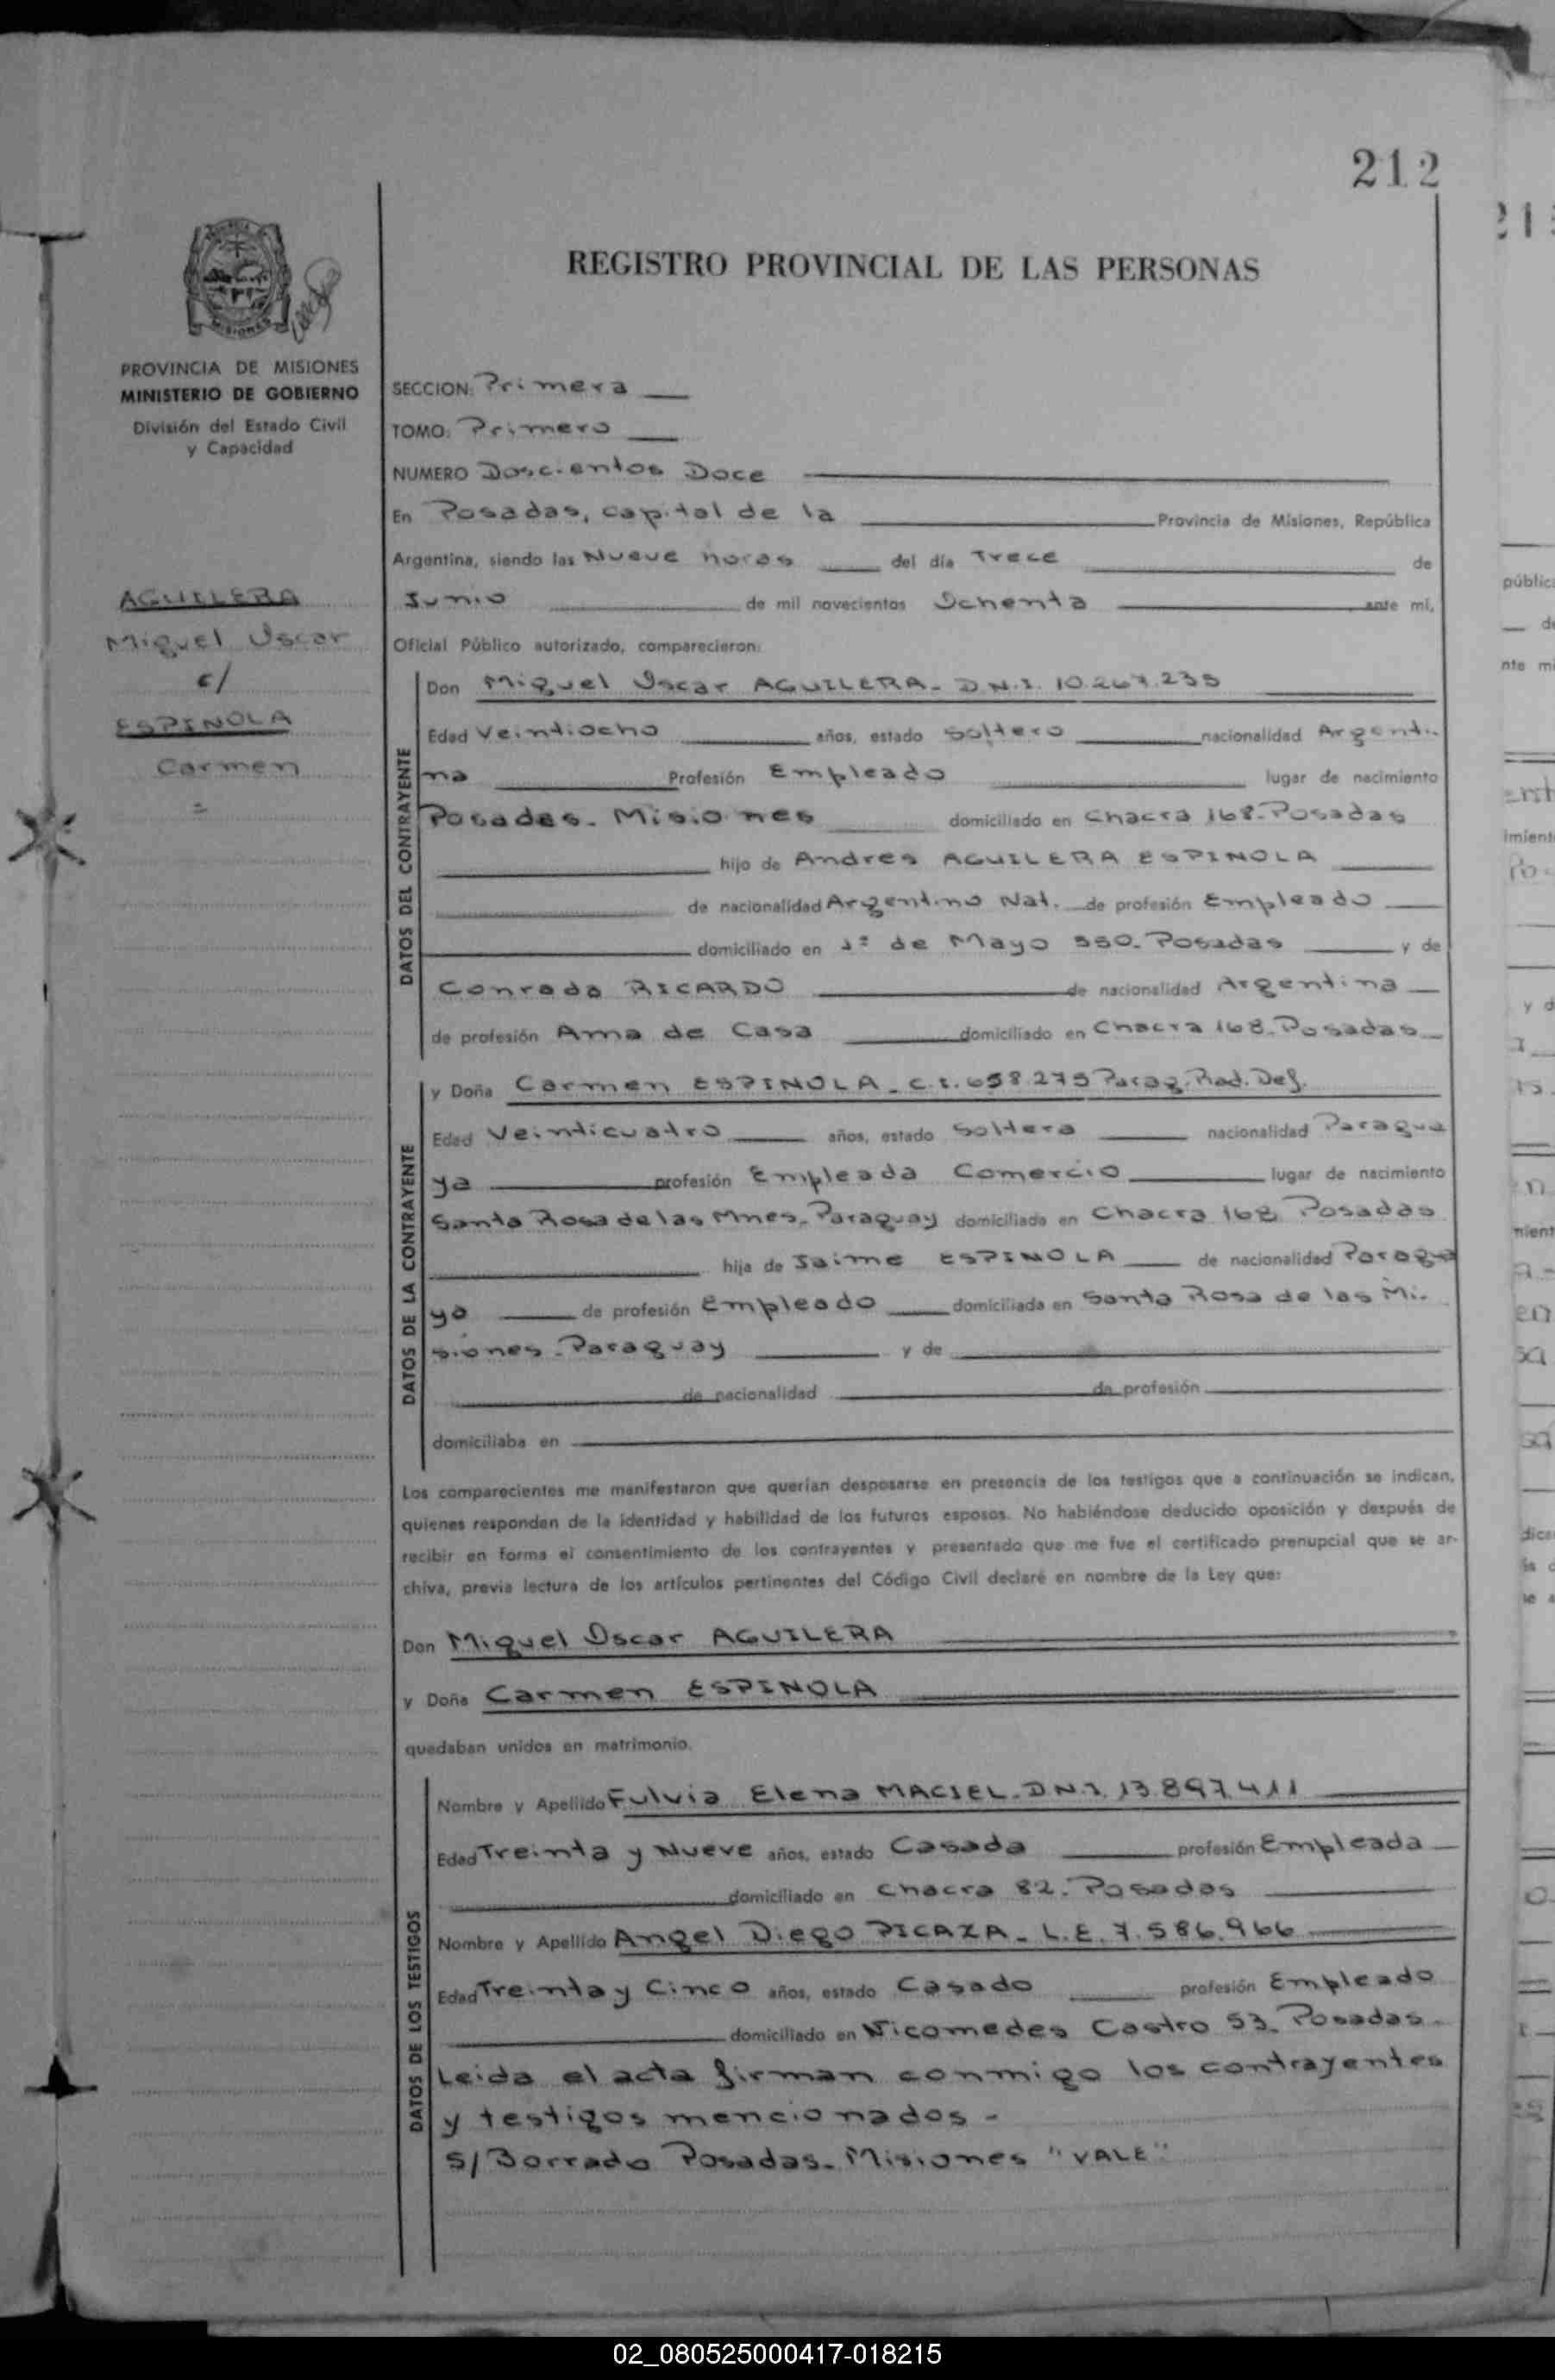 212
REGISTRO PROVINCIAL DE LAS PERSONAS
MISIONES
PROVINCIA DE MISIONES
MINISTERIO DE GOBIERNO
División del Estado Civil
y Capacidad
AGUILERA
Miguel Oscar
c/
ESPINOLA
Carmen
=
SECCION: Primera
TOMO: Primero
NUMERO Doscientos Doce
En Posadas, capital de la Provincia de Misiones, República
Argentina, siendo las Nueve horas del día Trece de
Junio de mil novecientos Ochenta ante mí,
Oficial Público autorizado, comparecieron:
DATOS DEL CONTRAYENTE
Don Miguel Oscar AGUILERA - D.N.I. 10.267.235
Edad Veintiocho años, estado Soltero nacionalidad Argenti-
na Profesión Empleado lugar de nacimiento
Posadas - Misiones domiciliado en Chacra 168 - Posadas
hijo de Andres AGUILERA ESPINOLA
de nacionalidad Argentino Nat. de profesión Empleado
domiciliado en 1º de Mayo 550 - Posadas y de
Conrada RICARDO de nacionalidad Argentina
de profesión Ama de Casa domiciliado en Chacra 168 - Posadas
DATOS DE LA CONTRAYENTE
y Doña Carmen ESPINOLA - C.I. 658.275 Parag. Rad. Def.
Edad Veinticuatro años, estado Soltera nacionalidad Paragua
ya profesión Empleada Comercio lugar de nacimiento
Santa Rosa de las Mnes. Paraguay domiciliada en Chacra 168 Posadas
hija de Jaime ESPINOLA de nacionalidad Paragua
yo de profesión Empleado domiciliada en Santa Rosa de las Mi-
siones - Paraguay y de
de nacionalidad de profesión
domiciliaba en
Los comparecientes me manifestaron que querían desposarse en presencia de los testigos que a continuación se indican,
quienes responden de la identidad y habilidad de los futuros esposos. No habiéndose deducido oposición y después de
recibir en forma el consentimiento de los contrayentes y presentado que me fue el certificado prenupcial que se ar-
chiva, previa lectura de los artículos pertinentes del Código Civil declaré en nombre de la Ley que:
Don Miguel Oscar AGUILERA
y Doña Carmen ESPINOLA
quedaban unidos en matrimonio.
DATOS DE LOS TESTIGOS
Nombre y Apellido Fulvia Elena MACIEL - D.N.I. 13.897.411
Edad Treinta y Nueve años, estado Casada profesión Empleada
domiciliado en Chacra 82 - Posadas
Nombre y Apellido Angel Diego PICAZA - L.E. 7.586.966
Edad Treinta y Cinco años, estado Casado profesión Empleado
domiciliado en Nicomedes Castro 53 - Posadas -
Leida el acta firman conmigo los contrayentes
y testigos mencionados -
S/Borrado Posadas - Misiones "VALE"
02_080525000417-018215